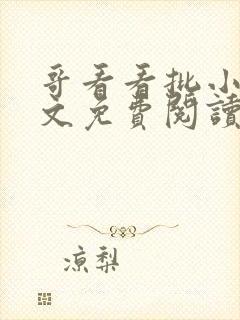 哥看看批小
文免費閱讀
凉梨